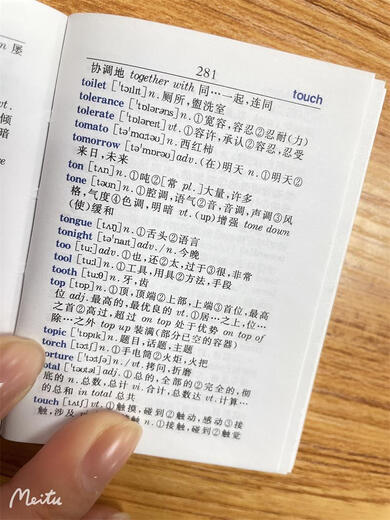 281
touch
协调地 together with 同…一起,连同
toilet ['tɔilit] n. 厕所,盥洗室
tolerance ['tɔlərəns] n. ①宽容,容忍②忍耐(力)
tolerate ['tɔləreit] vt. ①容许,承认②容忍,忍受
tomato [tə'mɑːtəu] n. 西红柿
tomorrow [tə'mɔrəu] adv. (在)明天 n. ①明天②
来日,未来
ton [tʌn] n. ①吨②[常 pl.]大量,许多
tone [təun] n. ①腔调,语气②音,音调,声调③风
格,气度④色调,明暗 vt. (up)增强 tone down
(使)缓和
tongue [tʌŋ] n. ①舌头②语言
tonight [tə'nait] adv./n. 今晚
too [tuː] adv. ①也,还②太,过于③很,非常
tool [tuːl] n. ①工具,用具②方法,手段
tooth [tuːθ] n. 牙,齿
top [tɔp] n. ①顶,顶端②上部,上端③首位,最高
位 adj. 最高的,最优良的 vt. ①居…之上,位…
之首②高过,超过 on top 处于优势 on top of
除…之外 top up 装满(部分已空的容器)
topic ['tɔpik] n. 题目,话题,主题
torch [tɔːtʃ] n. ①手电筒②火炬,火把
orture ['tɔːtʃə] n./vt. 拷问,折磨
otal ['təutəl] adj. ①总的,全部的②完全的,彻
底的 n. 总数,总计 vi. 合计,总数达 vt. 计算…
的总和 in total 总共
touch [tʌtʃ] vt. ①触摸,碰到②触动,感动③接
触,涉及 n. ①接触,碰到②触觉
n 屡
倾
暗
Meitu